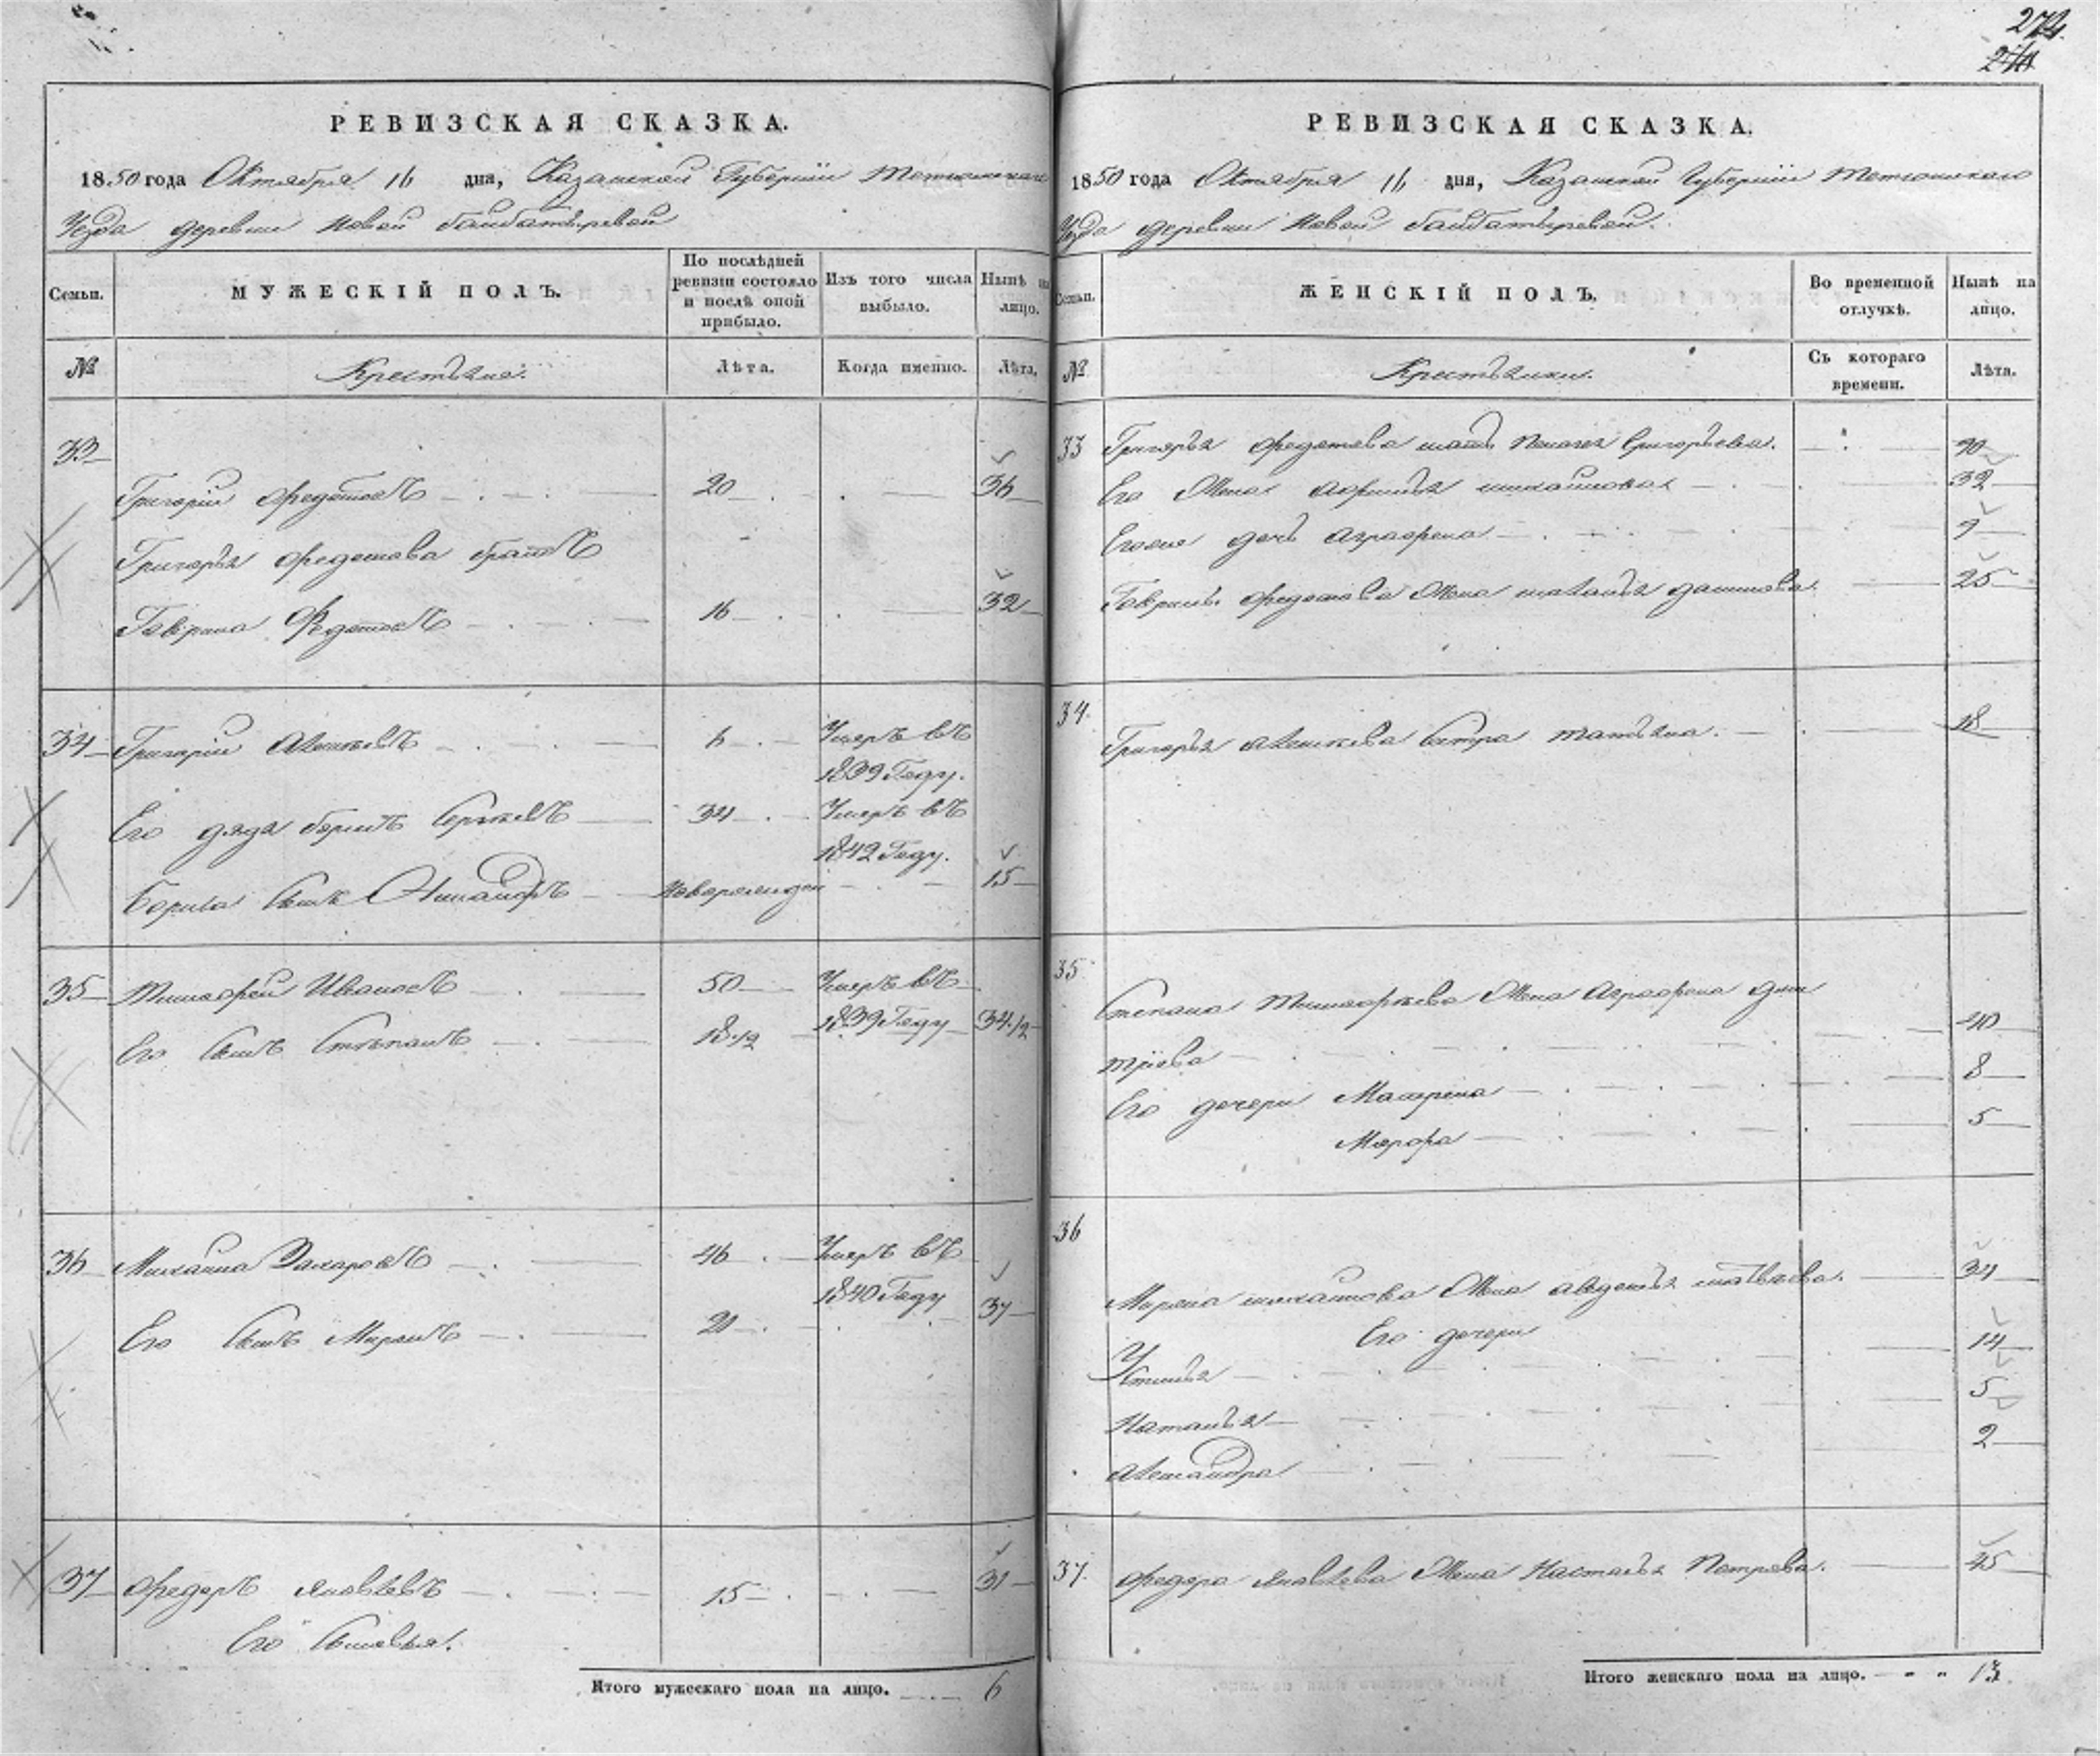 274
РЕВИЗСКАЯ СКАЗКА.
1850 года Октября 16 дня, Казанской Губернiи Тетюшскаго
Уезда деревни Новой Байбатыревой
Семьи. МУЖЕСКІЙ ПОЛЪ. По послѣдней ревизіи состояло и послѣ оной прибыло. Изъ того числа выбыло. Нынѣ на лицо.
№ Крестьяне. Лѣта. Когда именно. Лѣта.
33
Григорiй Федотовъ 20 36
Григорья Федотова братъ
Гаврила Федотовъ 16 32
34 Григорiй Алексѣевъ 6 Умеръ въ
1839 Году.
Его дядя Борисъ Сергѣевъ 34 Умеръ въ
1842 Году.
Бориса сынъ новорожден 15
35 Тимофей Ивановъ 50 Умеръ въ
1839 Году
Его сынъ Степанъ 18 1/2 34 1/2
36 Михайла Захаровъ 46 Умеръ въ
1840 Году
Его сынъ Миронъ 21 37
37 Федоръ Яковлевъ 15 31
Его сыновья.
Итого мужескаго пола на лицо. 6
РЕВИЗСКАЯ СКАЗКА.
1850 года Октября 16 дня, Казанской Губернiи Тетюшскаго
Уезда деревни Новой Байбатыревой.
Семьи. ЖЕНСКІЙ ПОЛЪ. Во временной отлучкѣ. Нынѣ на лицо.
№ Крестьянки. Съ котораго времени. Лѣта.
33 Григорья Федотова мать Григорьева.
Его жена Михайлова 32
Его дочь Аграфена 9
Гаврилы Федотова жена 25
34. Григорья Алексѣева сестра Татьяна. 18
35 Степана Тимофѣева жена Аграфена Дми
трiева 40
Его дочери 8
Марфа 5
36
Мирона Михайлова жена Авдотья Матвѣева. 34
Его дочери
Устинья 14
Наталья 5
Александра 2
37. Федора Яковлева жена Настасья Петрова.
Итого женскаго пола на лицо. 13